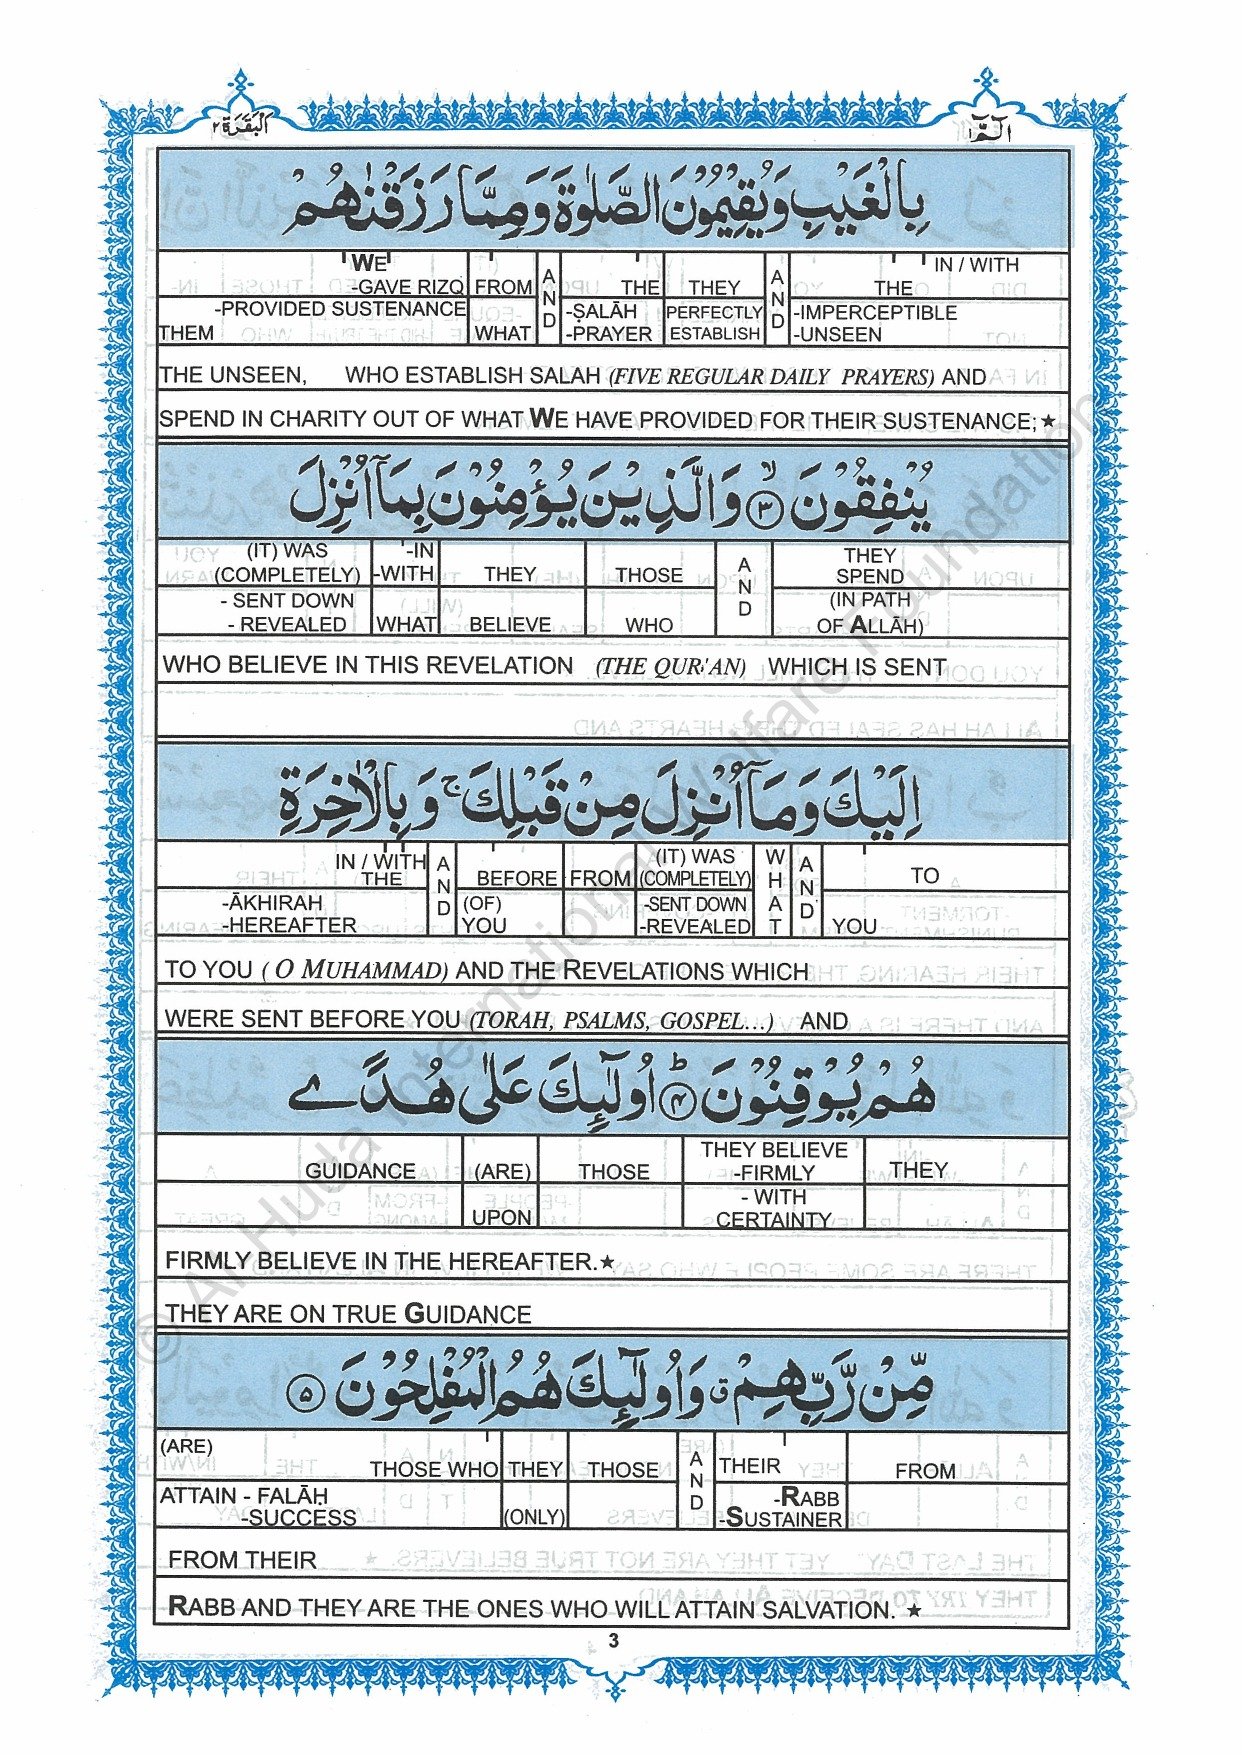 البقرة ٢
الٓمّٓ ١
بِالْغَيْبِ وَيُقِيْمُوْنَ الصَّلٰوةَ وَمِمَّا رَزَقْنٰهُمْ
WE IN / WITH
-GAVE RIZQ FROM AND THE THEY AND THE
-PROVIDED SUSTENANCE -ṢALĀH PERFECTLY -IMPERCEPTIBLE
THEM WHAT -PRAYER ESTABLISH -UNSEEN
THE UNSEEN, WHO ESTABLISH SALAH (FIVE REGULAR DAILY PRAYERS) AND
SPEND IN CHARITY OUT OF WHAT WE HAVE PROVIDED FOR THEIR SUSTENANCE;★
يُنْفِقُوْنَ ۙ ٣ وَالَّذِيْنَ يُؤْمِنُوْنَ بِمَآ اُنْزِلَ
(IT) WAS -IN THEY
(COMPLETELY) -WITH THEY THOSE AND SPEND
- SENT DOWN (IN PATH
- REVEALED WHAT BELIEVE WHO OF ALLĀH)
WHO BELIEVE IN THIS REVELATION (THE QUR'AN) WHICH IS SENT
اِلَيْكَ وَمَآ اُنْزِلَ مِنْ قَبْلِكَ ۚ وَبِالْاٰخِرَةِ
IN / WITH (IT) WAS
THE AND BEFORE FROM (COMPLETELY) WHAT AND TO
-ĀKHIRAH (OF) -SENT DOWN
-HEREAFTER YOU -REVEALED YOU
TO YOU ( O MUHAMMAD) AND THE REVELATIONS WHICH
WERE SENT BEFORE YOU (TORAH, PSALMS, GOSPEL...) AND
هُمْ يُوْقِنُوْنَ ؕ ٤ اُولٰٓئِكَ عَلٰى هُدًى
THEY BELIEVE
GUIDANCE (ARE) THOSE -FIRMLY THEY
- WITH
UPON CERTAINTY
FIRMLY BELIEVE IN THE HEREAFTER.★
THEY ARE ON TRUE GUIDANCE
مِّنْ رَّبِّهِمْ ۗ وَاُولٰٓئِكَ هُمُ الْمُفْلِحُوْنَ ٥
(ARE)
THOSE WHO THEY THOSE AND THEIR FROM
ATTAIN - FALĀḤ -RABB
-SUCCESS (ONLY) -SUSTAINER
FROM THEIR
RABB AND THEY ARE THE ONES WHO WILL ATTAIN SALVATION. ★
3
© An Huda International Welfare Foundation